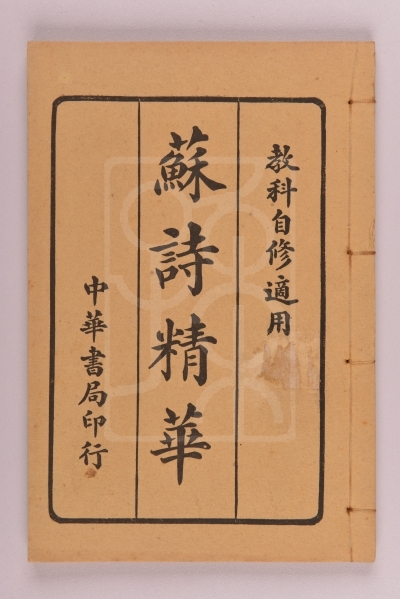 教科自修適用
蘇詩精華
中華書局印行